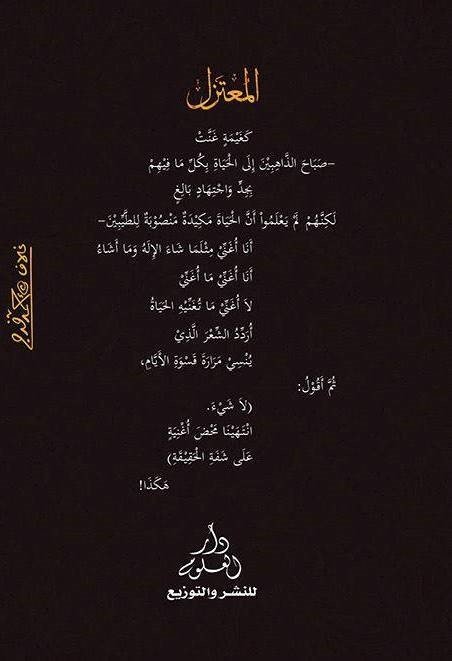 المعتزل
كَغَيْمَةٍ غَنَّتْ
-صَبَاحَ الذَّاهِبِيْنَ إِلَى الحَيَاةِ بِكُلِّ مَا فِيْهِمْ
بِجِدٍّ وَاجْتِهَادٍ بَالِغٍ
لَكِنَّهُمْ لَمْ يَعْلَمُواْ أَنَّ الحَيَاةَ مَكِيْدَةٌ مَنْصُوْبَةٌ لِلطَّيِّبِيْنَ-
أَنَا أُغَنِّيْ مِثْلَمَا شَاءَ الإِلَهُ وَمَا أَشَاءُ
أَنَا أُغَنِّيْ مَا أُغَنِّيْ
لاَ أُغَنِّيْ مَا تُغَنِّيْهِ الحَيَاةُ
أُرَدِّدُ الشِّعْرَ الَّذِيْ
يُنْسِيْ مَرَارَةَ قَسْوَةِ الأَيَّامِ،
ثُمَّ أَقُوْلُ:
(لاَ شَيْءَ.
انْتَهَيْنَا مَحْضَ أُغْنِيَةٍ
عَلَى شَفَةِ الحَقِيْقَةِ)
هَكَذَا!
دار
العلوم
للنشر والتوزيع